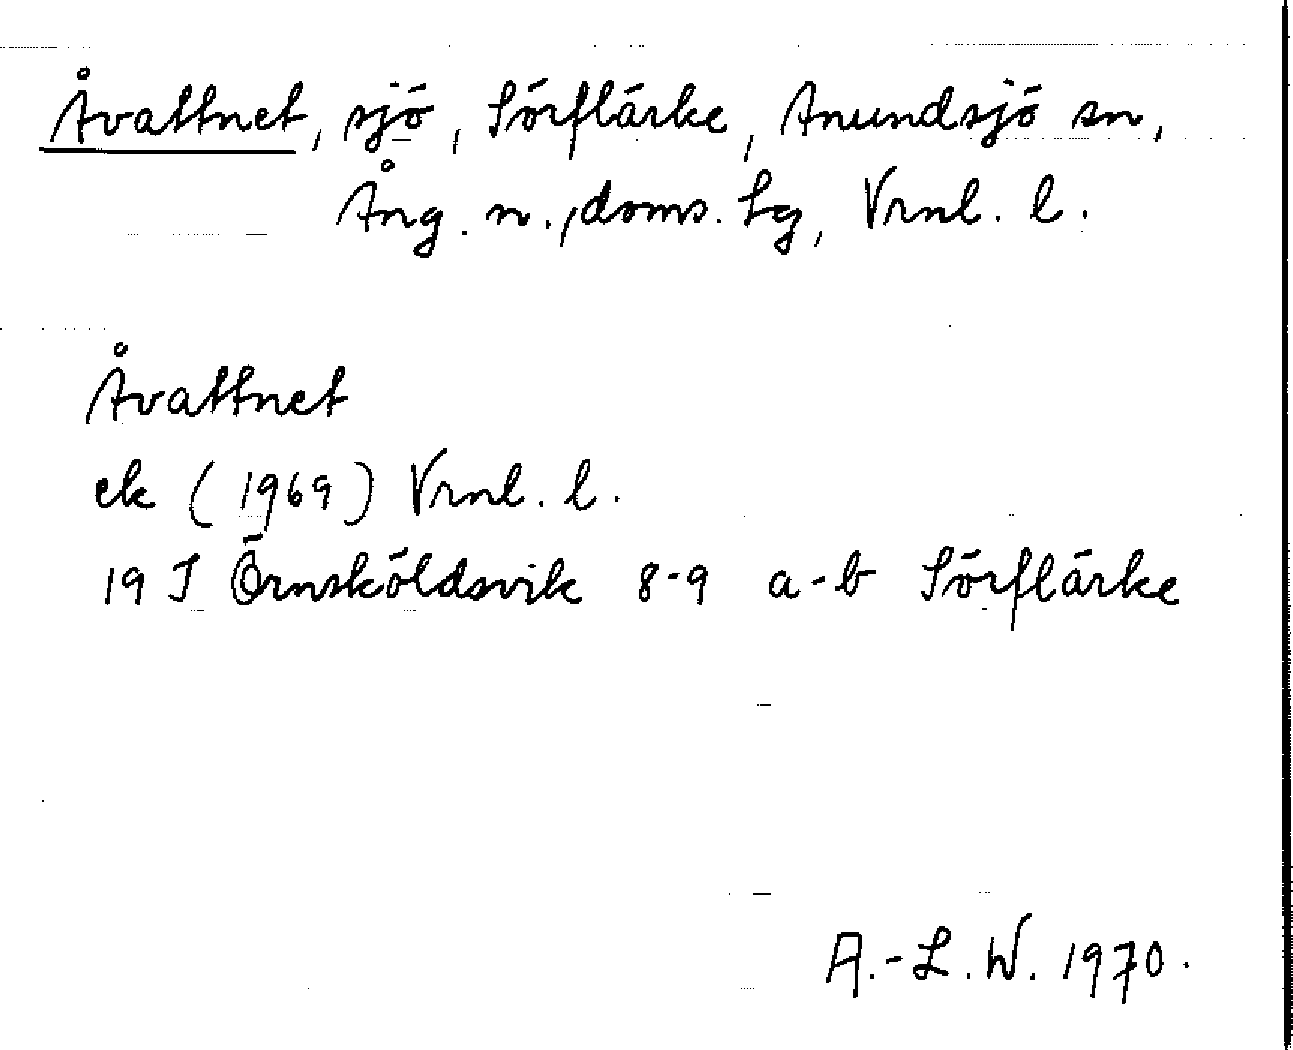 Åvattnet, sjö, Sörflärke, Anundsjö sn,
Ång. n., doms. lg, Vrnl. l.
Åvattnet
ek (1969) Vrnl. l.
19 J Örnsköldsvik 8-9 a-b Sörflärke
A.-L. W. 1970.